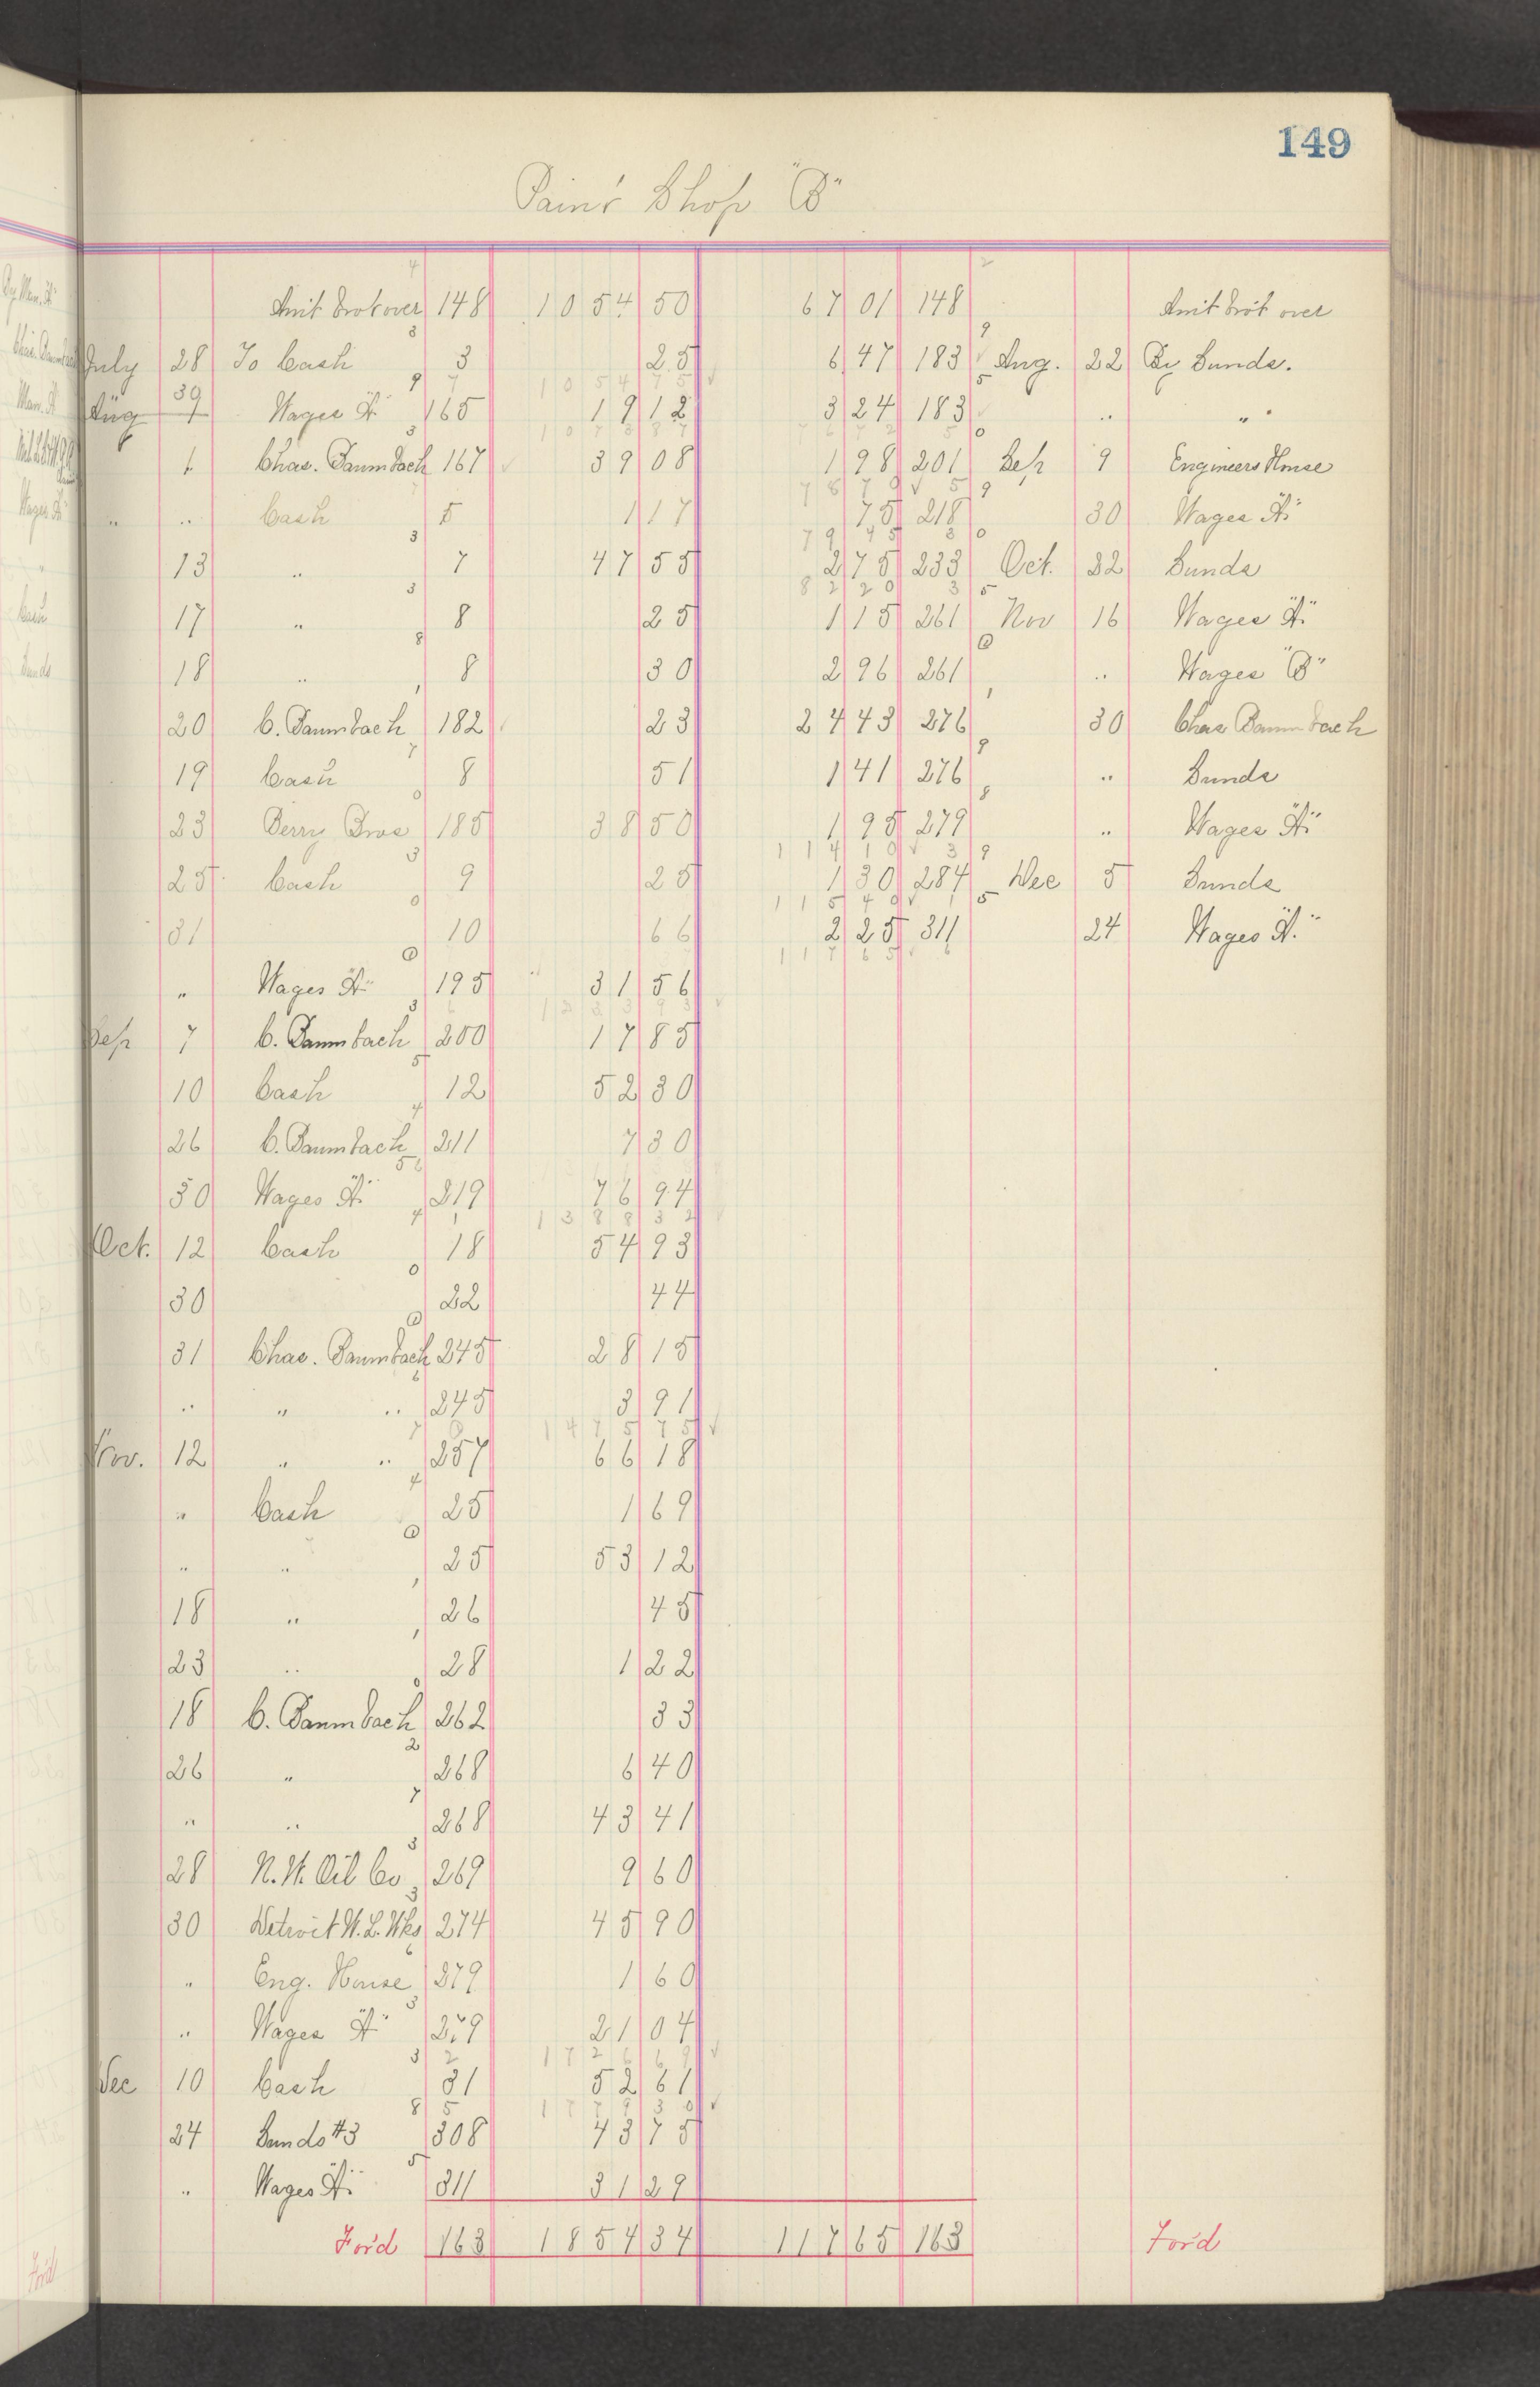 149
Paint Shop "B"
Amt brot over 148 1054 50 67 01 148 Amt brot over
July 28 To Cash 3 25 6 47 183 Aug. 22 By Sunds.
1054 75
Aug Wages "A" 165 19 12 3 24 183 " "
1073 87 76 72
1 Chas. Baumbach 167 39 08 1 98 201 Sep 9 Engineers House
78 70
" " Cash 5 1 17 75 218 30 Wages "A"
79 45
13 " 7 47 55 2 75 233 Oct. 22 Sunds
82 20
17 " 8 25 1 15 261 Nov 16 Wages "A"
18 " 8 30 2 96 261 " Wages "B"
20 C. Baumbach 182 23 24 43 276 30 Chas Baumbach
19 Cash 8 51 1 41 276 " Sunds
23 Berry Bros 185 38 50 1 95 279 " Wages "A"
114 10
25 Cash 9 25 1 30 284 Dec 5 Sunds
115 40
31 10 66 2 25 311 24 Wages "A"
117 65
" Wages "A" 195 31 56
1233 93
Sep 7 C. Baumbach 200 17 85
10 Cash 12 52 30
26 C. Baumbach 211 7 30
30 Wages "A" 219 76 94
1388 32
Oct. 12 Cash 18 54 93
30 22 44
31 Chas. Baumbach 245 28 15
" " " 245 3 91
1475 75
Nov. 12 " " 257 66 18
" Cash 25 1 69
" " 25 53 12
18 " 26 45
23 " 28 1 22
18 C. Baumbach 262 33
26 " 268 6 40
" " 268 43 41
28 N.W. Oil Co 269 9 60
30 Detroit W.L. Wks 274 45 90
" Eng. House 279 1 60
" Wages "A" 279 21 04
1726 69
Dec 10 Cash 31 52 61
1779 30
24 Sunds #3 308 43 75
" Wages "A" 311 31 29
Ford 163 1854 34 117 65 163 Ford